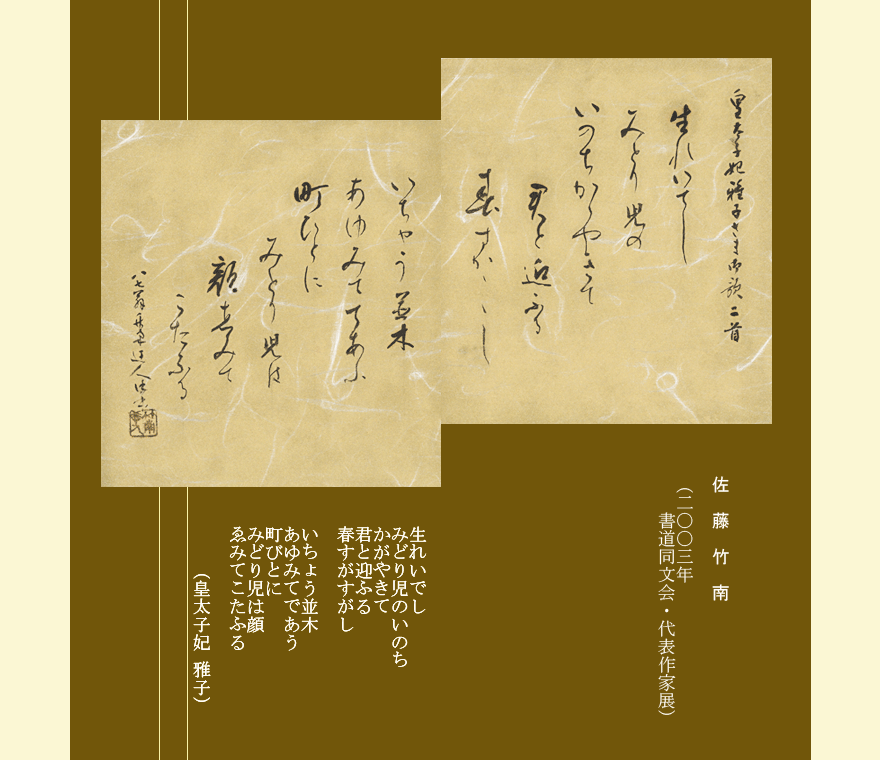 皇太子妃雅子さま御歌二首
生れいでし
みどり児の
いのちかがやきて
君と迎ふる
春すがすがし
いちゃう並木
あゆみてであふ
町びとに
みどり児は
顔ゑみて
こたふる
佐藤竹南
（二〇〇三年
書道同文会・代表作家展）
生れいでし
みどり児のいのち
かがやきて
君と迎ふる
春すがすがし
いちょう並木
あゆみてであう
町びとに
みどり児は顔
ゑみてこたふる
（皇太子妃 雅子）